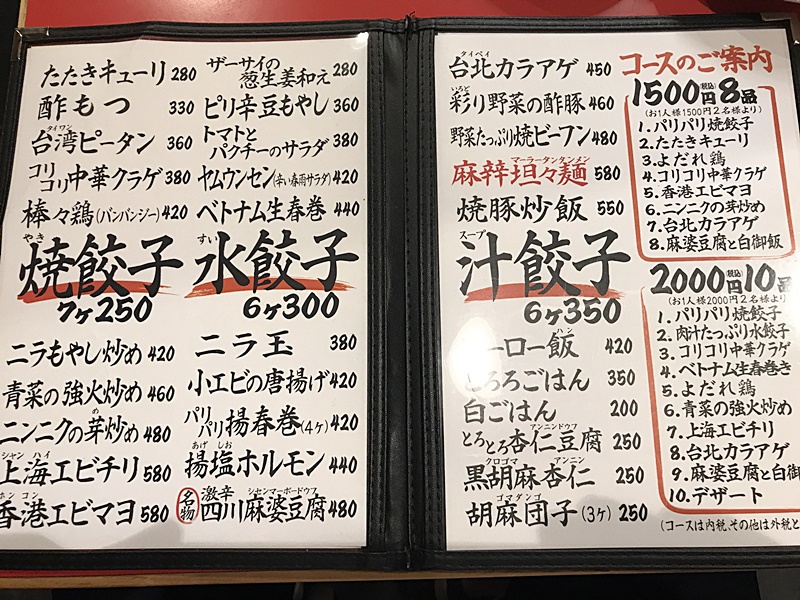 たたきキューリ 280
酢もつ 330
台湾ピータン 360
タイワン
コリコリ中華クラゲ 380
棒々鶏(バンバンジー) 420
ザーサイの葱生姜和え 280
ピリ辛豆もやし 360
トマトとパクチーのサラダ 380
ヤムウンセン(辛い春雨サラダ) 420
ベトナム生春巻 440
やき
焼餃子
7ヶ250
すい
水餃子
6ヶ300
ニラもやし炒め 420
青菜の強火炒め 460
ニンニクの芽炒め 480
め
シャンハイ
上海エビチリ 580
ホンコン
香港エビマヨ 580
ニラ玉 380
小エビの唐揚げ 420
パリパリ揚春巻(4ヶ) 420
あげ しお
揚塩ホルモン 440
シャンマーボードウフ
名物 激辛四川麻婆豆腐 480
タイペイ
台北カラアゲ 450
いろど
彩り野菜の酢豚 460
野菜たっぷり焼ビーフン 480
マーラータンタンメン
麻辣坦々麺 580
焼豚炒飯 550
スープ
汁餃子
6ヶ350
ハン
ーロー飯 420
とろろごはん 350
白ごはん 200
アンニンドウフ
とろとろ杏仁豆腐 250
クロゴマ アンニン
黒胡麻杏仁 250
ゴマダンゴ
胡麻団子(3ヶ) 250
コースのご案内
1500円(税込)8品
(お1人様1500円2名様より)
1.パリパリ焼餃子
2.たたきキューリ
3.よだれ鶏
4.コリコリ中華クラゲ
5.香港エビマヨ
6.ニンニクの芽炒め
7.台北カラアゲ
8.麻婆豆腐と白御飯
2000円(税込)10品
(お1人様2000円2名様より)
1.パリパリ焼餃子
2.肉汁たっぷり水餃子
3.コリコリ中華クラゲ
4.ベトナム生春巻き
5.よだれ鶏
6.青菜の強火炒め
7.上海エビチリ
8.台北カラアゲ
9.麻婆豆腐と白御
10.デザート
(コースは内税、その他は外税と